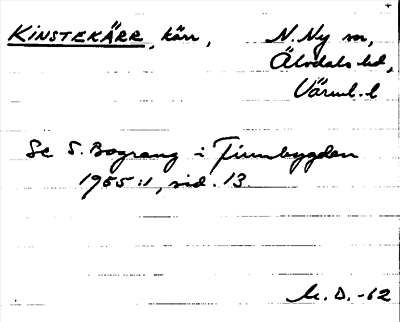 KINSTEKÄRR, kärr, N. Ny sn,
Älvdals hd,
Värml. l
Se S. Bograng i Finnbygden
1955:1, sid. 13
M. D. -62